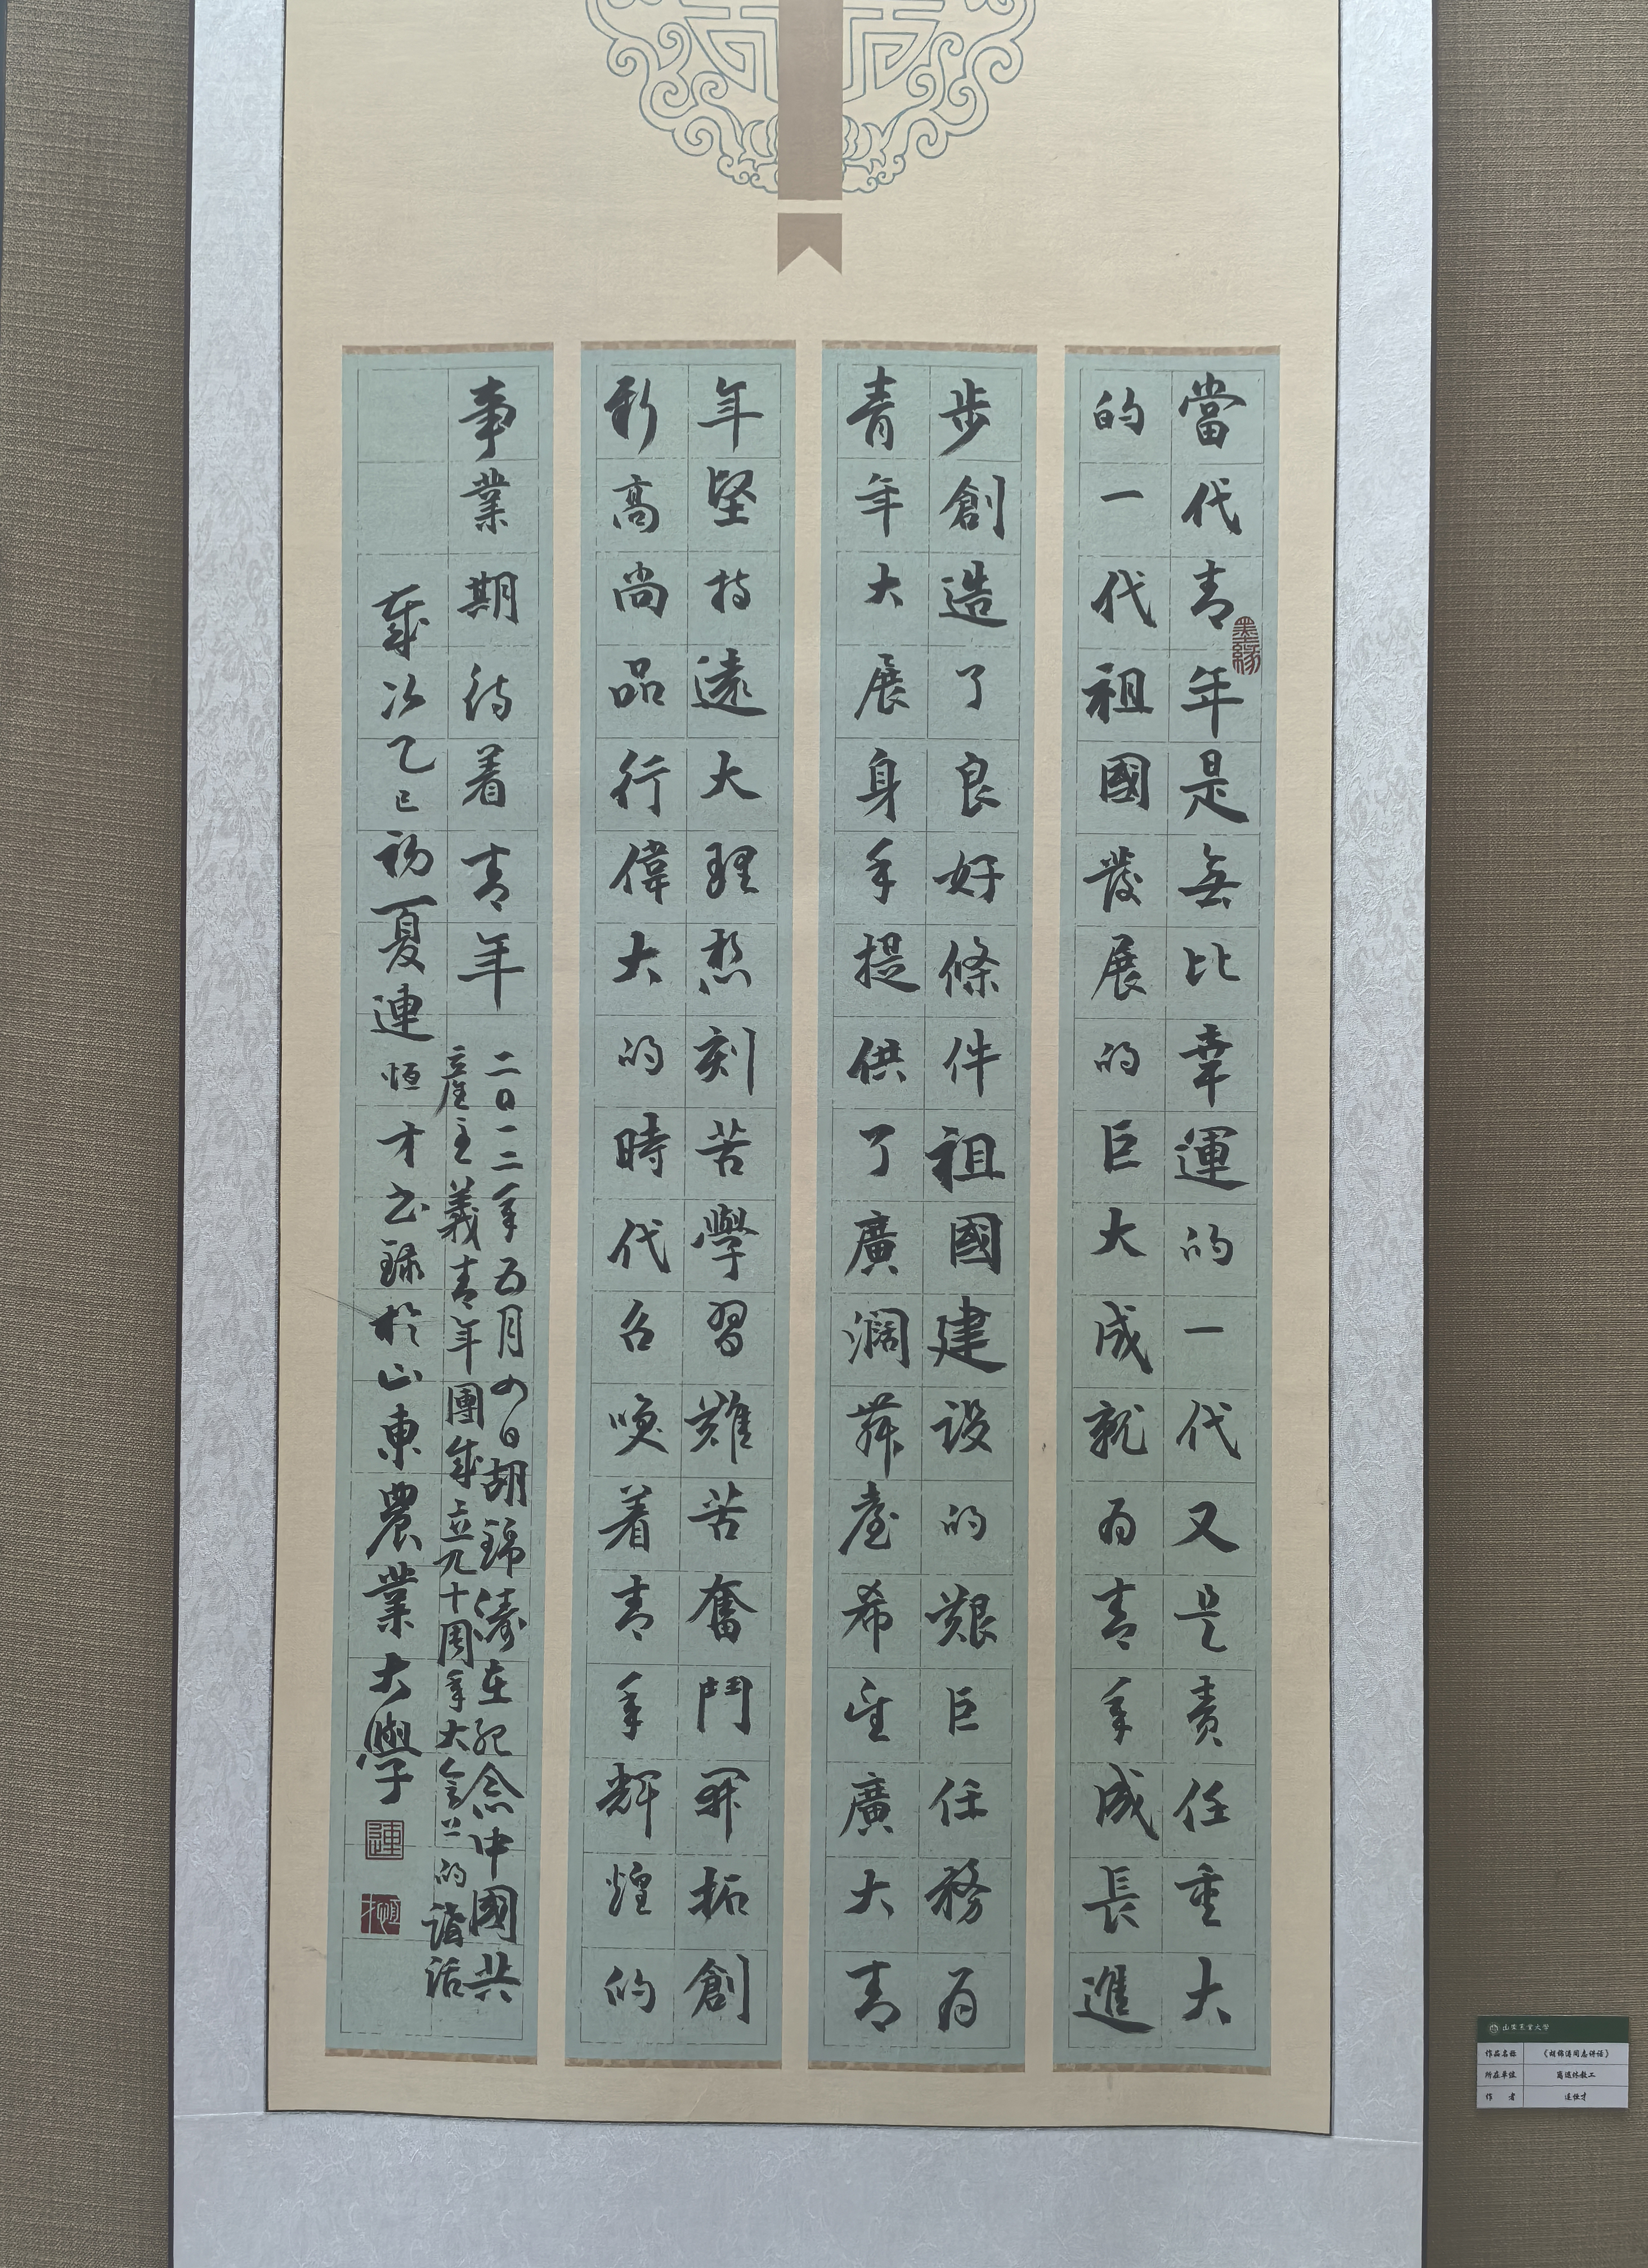 當代青年是無比幸運的一代又是責任重大
的一代祖國發展的巨大成就為青年成長進
步創造了良好條件祖國建設的艱巨任務為
青年大展身手提供了廣濶舞臺希望廣大青
年堅持遠大理想刻苦學習艱苦奮鬥開拓創
新高尚品行偉大的時代召喚着青年輝煌的
事業期待着青年
二〇一二年五月四日胡錦濤在紀念中國共
產主義青年團成立九十周年大會上的講話
歲次乙巳初夏連恒才書錄於山東農業大學
墨緣
連
恒才
山東農業大學
作品名称 《胡锦涛同志讲话》
所在单位 离退休教工
作者 连恒才